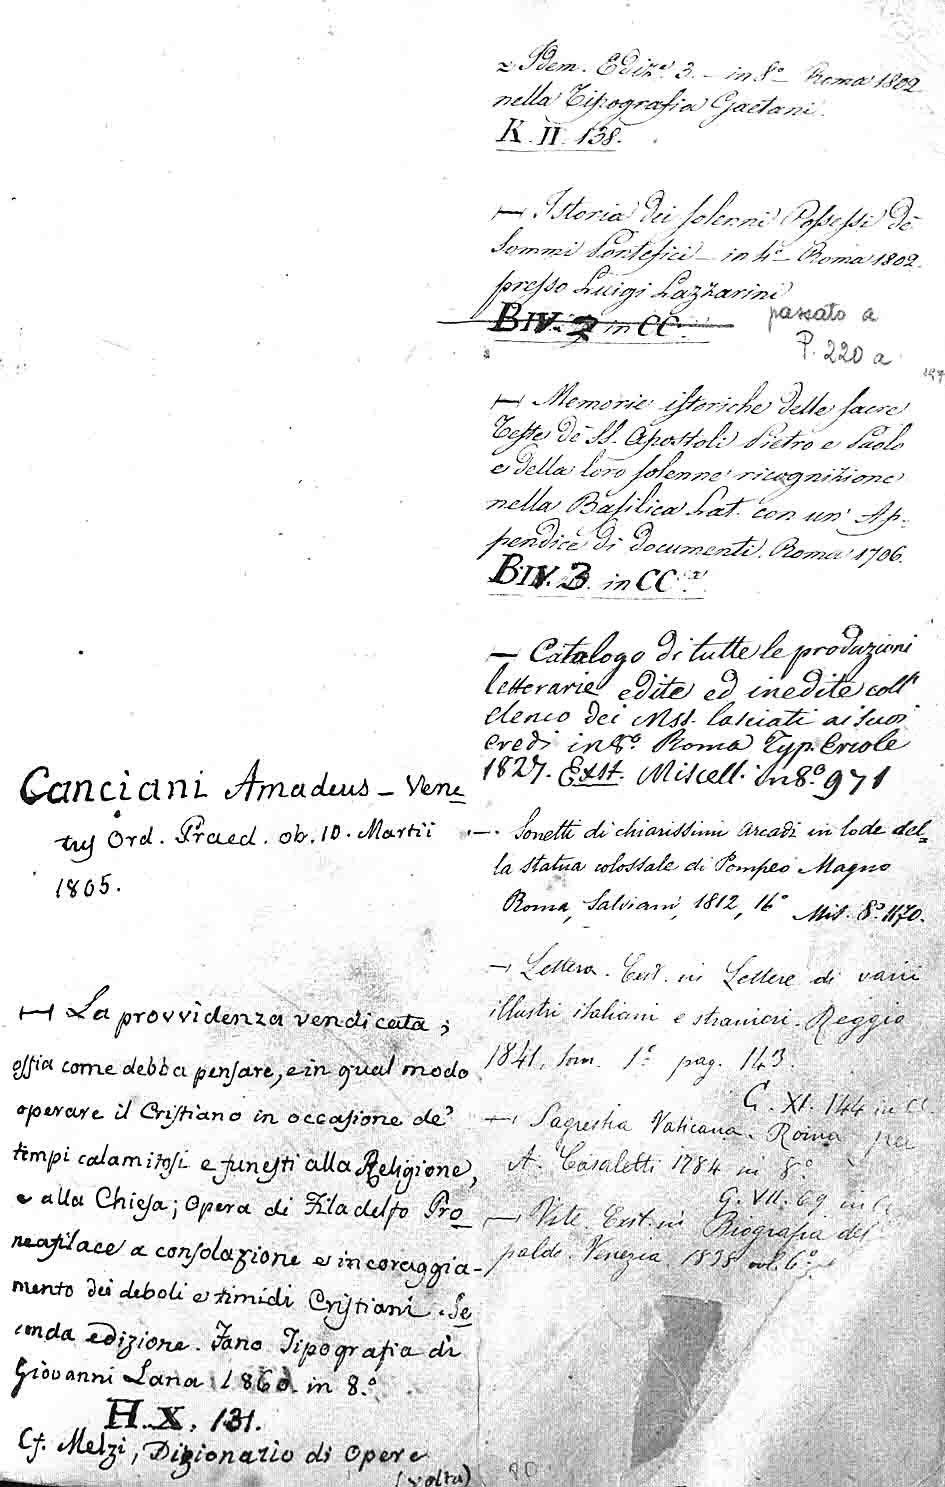 Canciani Amadeus – Vene
tus Ord. Praed. ob. 10. Martii
1805.
La provvidenza vendicata;
ossia come debba pensare, e in qual modo
operare il Cristiano in occasione de'
tempi calamitosi e funesti alla Religione,
e alla Chiesa; Opera di Filadelfo Pro
neasilace a consolazione e incoraggia-
mento dei deboli e timidi Cristiani. Se
conda edizione. Fano Tipografia di
Giovanni Lana 1860 in 8.º
H. X, 131.
Cf. Melzi, Dizionario di Opere
(volta)
Idem. Edizᵉ 3. – in 8º Roma 1802
nella Tipografia Gaetani.
K. II. 138.
– Istoria dei solenni Possessi de'
Sommi Pontefici – in 4º – Roma 1802.
presso Luigi Lazzarini
BIV. 2 in CC.
passato a
P. 220 a
– Memorie istoriche delle sacre
Teste de' SS. Apostoli Pietro e Paolo
e della loro solenne ricognizione
nella Basilica Lat. con un' Ap-
pendice di documenti. Roma 1706.
BIV. 3. in CC.
– Catalogo di tutte le produzioni
letterarie edite ed inedite coll'
elenco dei Mss. lasciati ai suoi
eredi in 8º Roma Typ. Ercole
1827. Ext. Miscell. in 8º 971
– Sonetti di chiarissimi arcadi in lode del
la statua colossale di Pompeo Magno
Roma, Salviani, 1812, 16º Mis. 8º 1170.
– Lettera. Est. in Lettere di varii
illustri italiani e stranieri. Reggio
1841, tom. 1º pag. 143.
G. XI. 144 in CC.
– Sagrestia Vaticana. Roma per
A. Casaletti 1784 in 8º
G. VII. 69 in
– Vite. Est. in Biografia del
paldo. Venezia. 1838 vol. 6º